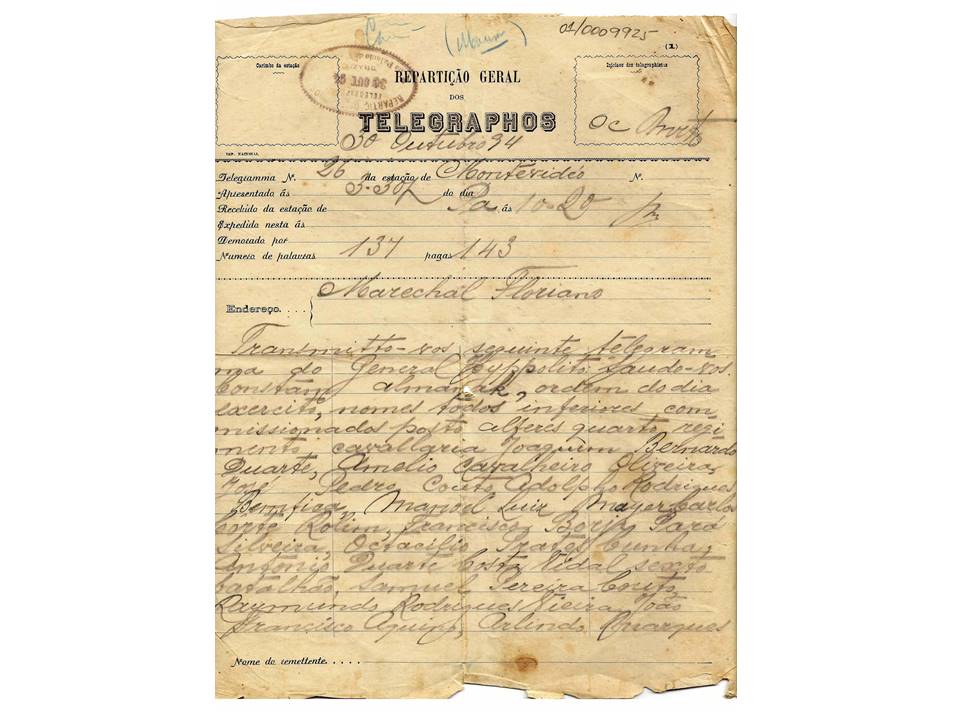 01/0009925
(1)
Carimbo da estação
Iniciaes dos telegraphistas
REPARTIÇÃO GERAL
DOS
TELEGRAPHOS
30 OUT 94
oc
30 Outubro 94
IMP. NACIONAL
Telegramma N. 26 da estação de Montevidéo N.
Apresentado ás do dia
Recebido da estação de Pa ás 10-20
Expedido nesta ás
Demorado por
Numero de palavras 137 pagas 143
Marechal Floriano
Endereço....
Transmitto-vos seguinte telegram
ma do General Hyppolito Saudo-vos.
Constam almanak, ordem do dia
exercito, nomes todos inferiores com
missionados posto alferes quarto regi
mento cavallaria Joaquim Bernardo
Duarte, Amelio Cavalheiro Oliveira,
José Pedro Couto Adolpho Rodrigues
Bemfica, Manoel Luiz Mayer Carlos
Corte Rolim, Francisco Borja Pará
Silveira, Octacilio Prates Cunha,
Antonio Duarte Costa Vidal sexto
batalhão, Samuel Pereira Couto,
Raymundo Rodrigues Vieira, João
Francisco Aquino, Arlindo Marques
Nome do remettente.....